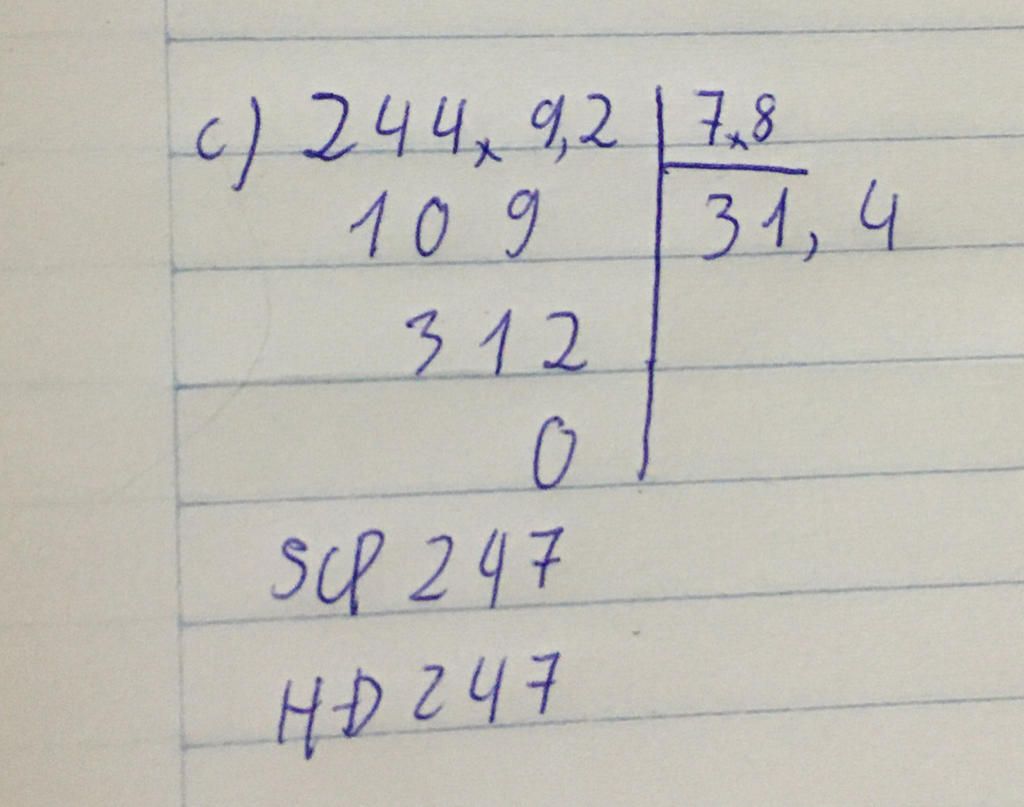 c) 244,9,2 | 7,8
109 31,4
312
0
SCP 247
HD 247